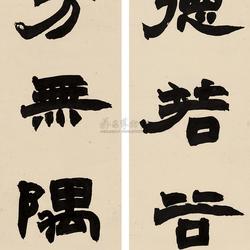 德若谷
方無隅